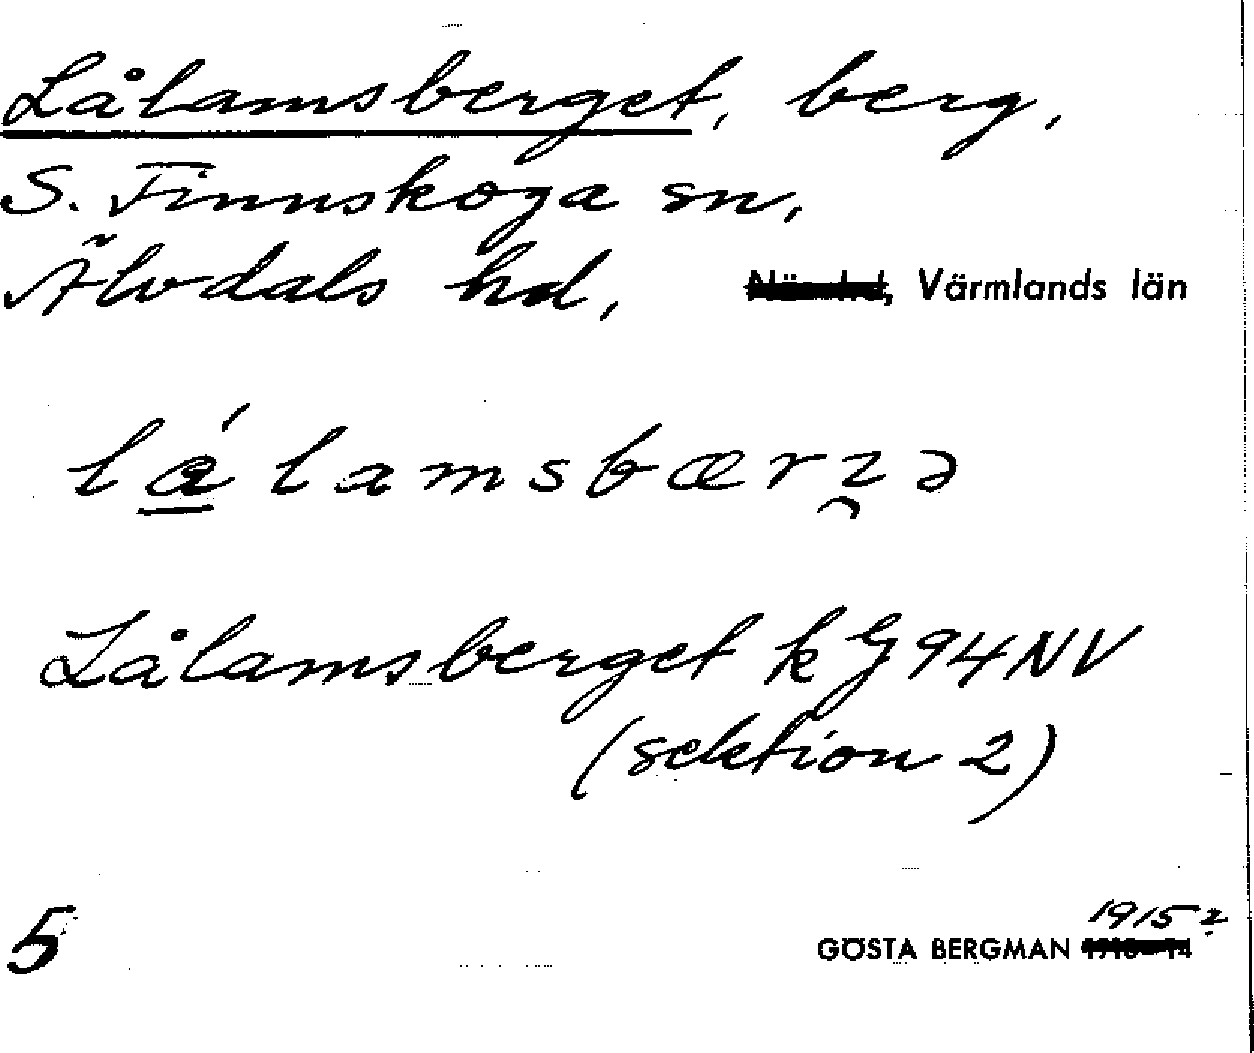 Lålamsberget, berg,
S. Finnskoga sn,
Älvdals hd, Värmlands län
lálamsbærɿ̯ə
Lålamsberget k G 94 NV
(sektion 2)
1915?
5 GÖSTA BERGMAN